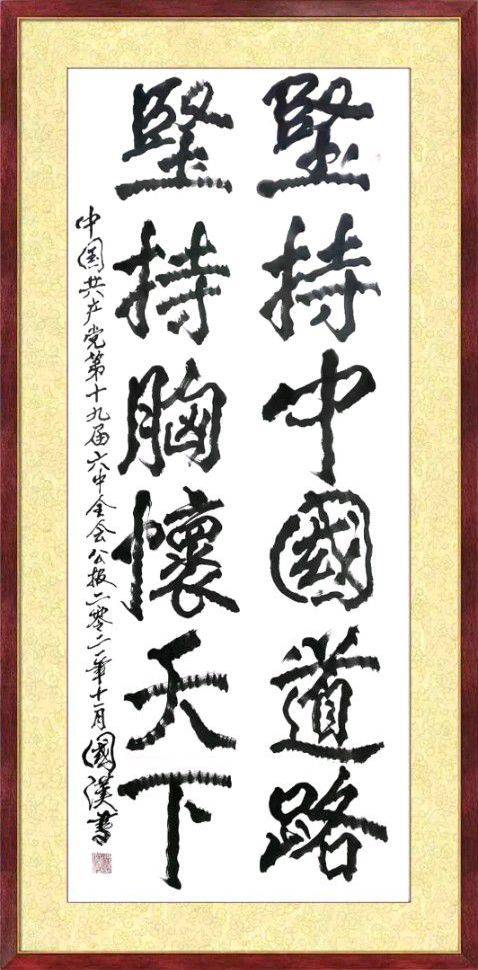 堅持中國道路
堅持胸懷天下
中国共产党第十九届六中全会公报二零二一年十一月國漢書